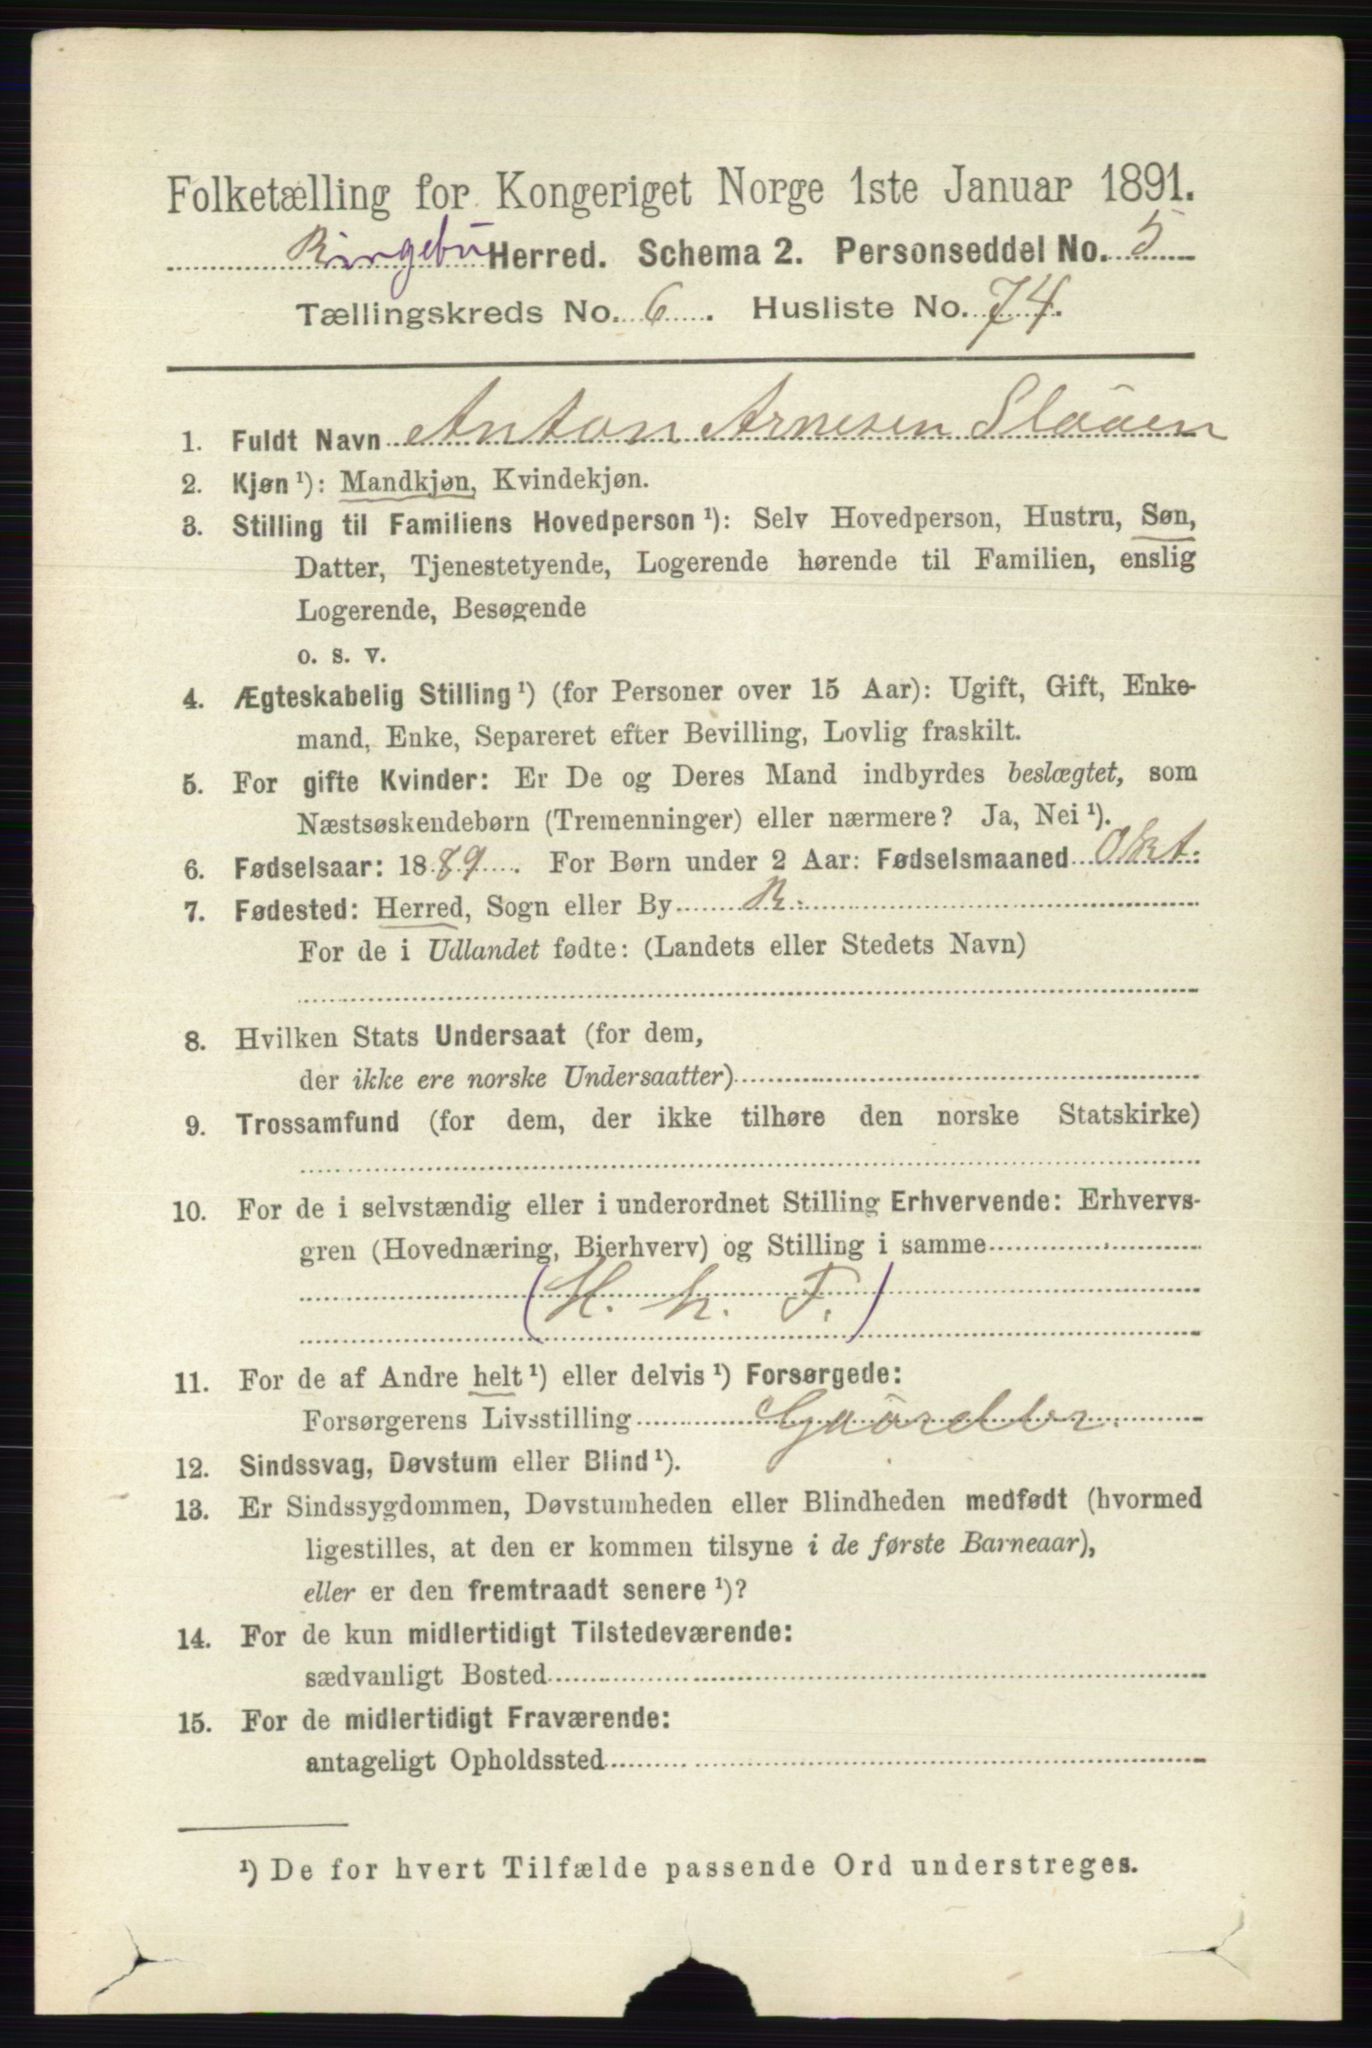 Folketælling for Kongeriget Norge 1ste Januar 1891.
Ringebu Herred. Schema 2. Personseddel No. 5
Tællingskreds No. 6. Husliste No. 74.
1. Fuldt Navn Anton Arnesen Slaaen
2. Kjøn ¹): Mandkjøn, Kvindekjøn.
3. Stilling til Familiens Hovedperson ¹): Selv Hovedperson, Hustru, Søn,
Datter, Tjenestetyende, Logerende hørende til Familien, enslig
Logerende, Besøgende
o. s. v.
4. Ægteskabelig Stilling ¹) (for Personer over 15 Aar): Ugift, Gift, Enke-
mand, Enke, Separeret efter Bevilling, Lovlig fraskilt.
5. For gifte Kvinder: Er De og Deres Mand indbyrdes beslægtet, som
Næstsøskendebørn (Tremenninger) eller nærmere? Ja, Nei ¹).
6. Fødselsaar: 1889. For Børn under 2 Aar: Fødselsmaaned Okt.
7. Fødested: Herred, Sogn eller By R.
For de i Udlandet fødte: (Landets eller Stedets Navn)
8. Hvilken Stats Undersaat (for dem,
der ikke ere norske Undersaatter)
9. Trossamfund (for dem, der ikke tilhøre den norske Statskirke)
10. For de i selvstændig eller i underordnet Stilling Erhvervende: Erhvervs-
gren (Hovednæring, Bierhverv) og Stilling i samme
(H. h. F.)
11. For de af Andre helt ¹) eller delvis ¹) Forsørgede:
Forsørgerens Livsstilling Gaardbr.
12. Sindssvag, Døvstum eller Blind ¹).
13. Er Sindssygdommen, Døvstumheden eller Blindheden medfødt (hvormed
ligestilles, at den er kommen tilsyne i de første Barneaar),
eller er den fremtraadt senere ¹)?
14. For de kun midlertidigt Tilstedeværende:
sædvanligt Bosted
15. For de midlertidigt Fraværende:
antageligt Opholdssted
¹) De for hvert Tilfælde passende Ord understreges.